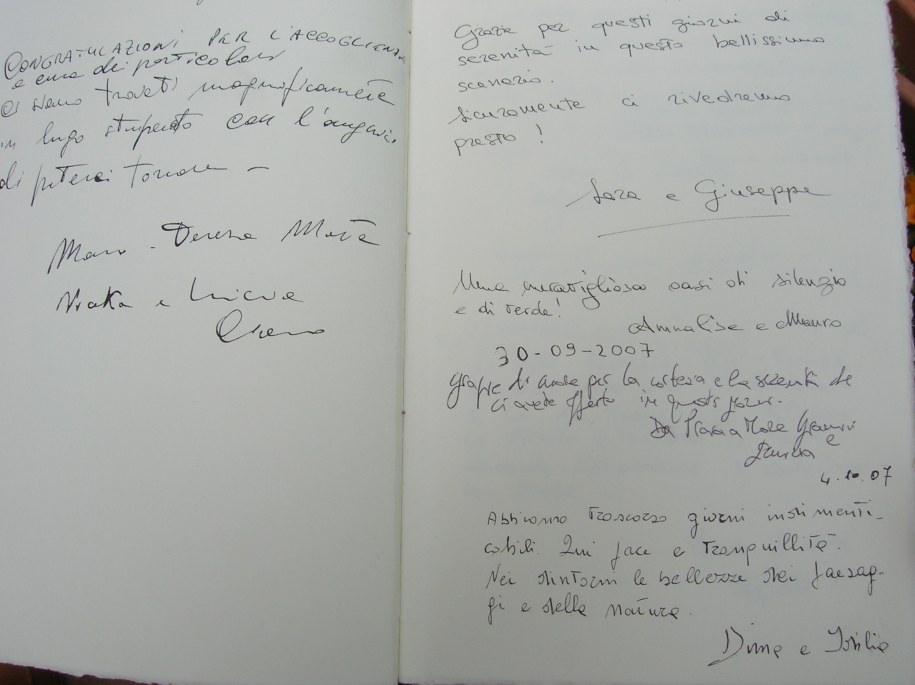 CONGRATULAZIONI PER L'ACCOGLIENZA
e cura dei particolari
Ci siamo trovati magnificamente
in luogo stupendo con l'augurio
di poterci tornare –
Teresa
e
Grazie per questi giorni di
serenità in questo bellissimo
scenario.
Sicuramente ci rivedremo
presto!
Sara e Giuseppe
Una meravigliosa oasi di silenzio
e di verde!
Annalisa e Mauro
30-09-2007
Grazie di cuore per la cortesia e la serenità che
ci avete offerto in questi giorni.
Da
e
4.10.07
Abbiamo trascorso giorni indimenti-
cabili. Qui pace e tranquillità.
Nei dintorni le bellezze dei paesag-
gi e della natura.
e